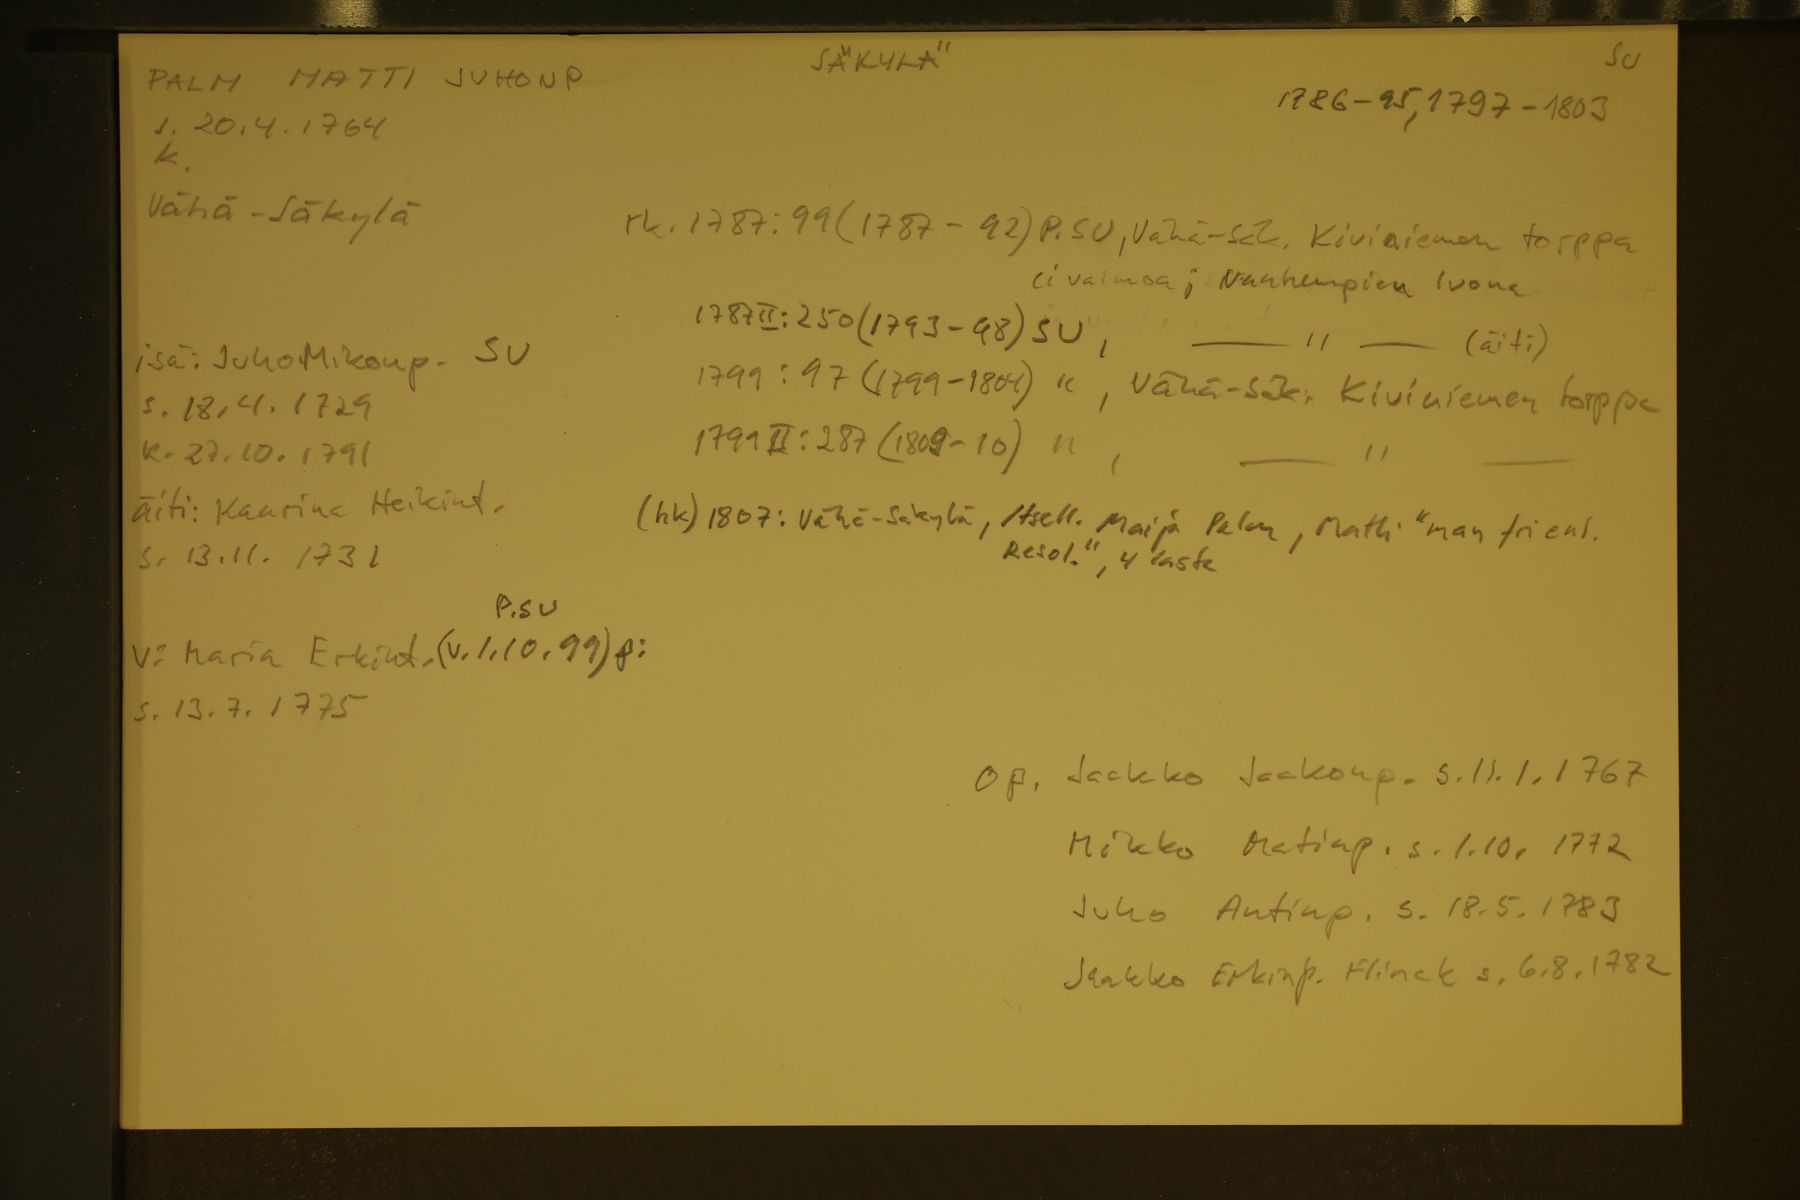 PALM MATTI JUHONP
SÄKYLÄ
SU
1786-95, 1797-1803
s. 20.4.1764
k.
Vähä-Säkylä
rk. 1787: 99 (1787-92) P.SU, Vähä-Säk. Kiviniemen torppa
ei vaimoa; Vanhempien luona
1787 II: 250 (1793-98) SU, — " — (äiti)
isä: Juho Mikonp. SU
s. 18.4.1729
1799: 97 (1799-1804) ", Vähä-Säk. Kiviniemen torppa
k. 27.10.1791
1799 II: 287 (1809-10) ", — " —
äiti: Kaarina Heikint.
s. 13.11.1731
(hk) 1807: Vähä-Säkylä, Itsell. Maija Palm, Matti "man fri enl.
Resol.", 4 lasta
P.SU
v: Maria Erkint. (v. 1.10.99) p:
s. 13.7.1775
op. Jaakko Jaakonp. s. 11.1.1767
Mikko Matinp. s. 1.10.1772
Juho Antinp. s. 18.5.1783
Jaakko Erkinp. Flinck s. 6.8.1782